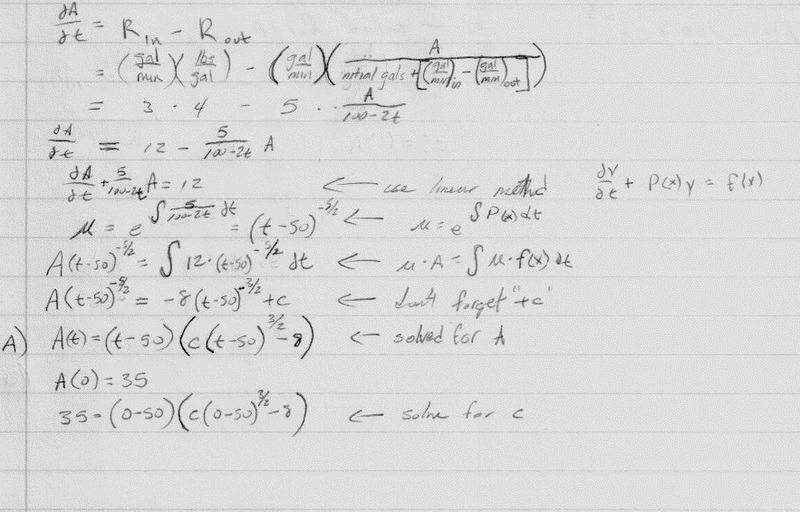 dA/dt = R_in - R_out
= (gal/min)(lbs/gal) - (gal/min)(A/(initial gals + [(gal/min)_in - (gal/min)_out]))
= 3 · 4 - 5 · A/(100-2t)
dA/dt = 12 - 5/(100-2t) A
dA/dt + 5/(100-2t) A = 12 ← use linear method dy/dt + P(x)y = f(x)
μ = e^(∫ 5/(100-2t) dt) = (t-50)^(-5/2) ← μ = e^(∫P(x)dt)
A(t-50)^(-5/2) = ∫ 12·(t-50)^(-5/2) dt ← μ·A = ∫ μ·f(x) dt
A(t-50)^(-5/2) = -8(t-50)^(-3/2) + c ← don't forget "+c"
A) A(t) = (t-50)(c(t-50)^(3/2) - 8) ← solved for A
A(0) = 35
35 = (0-50)(c(0-50)^(3/2) - 8) ← solve for c